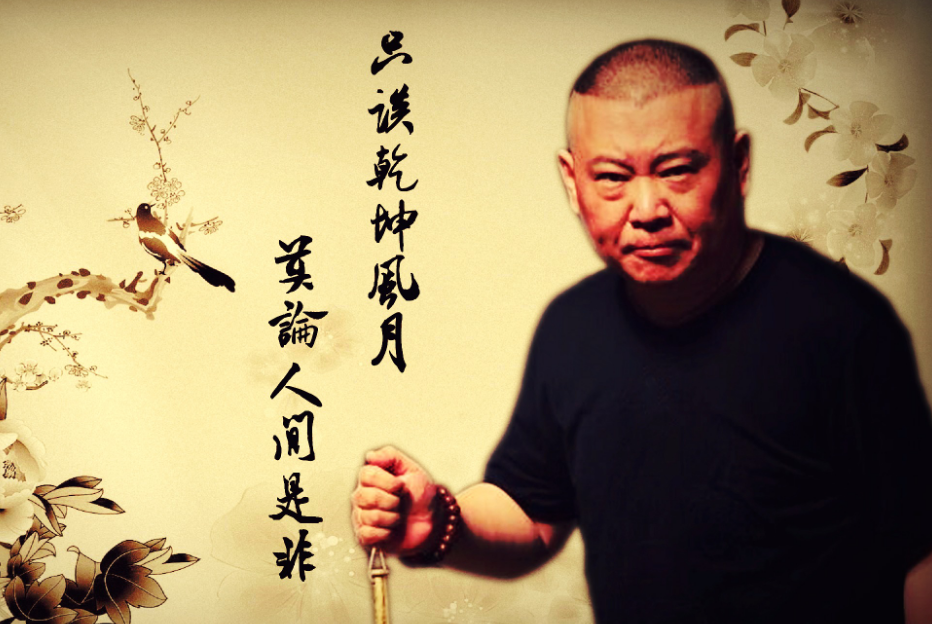 只談乾坤風月
莫論人间是非